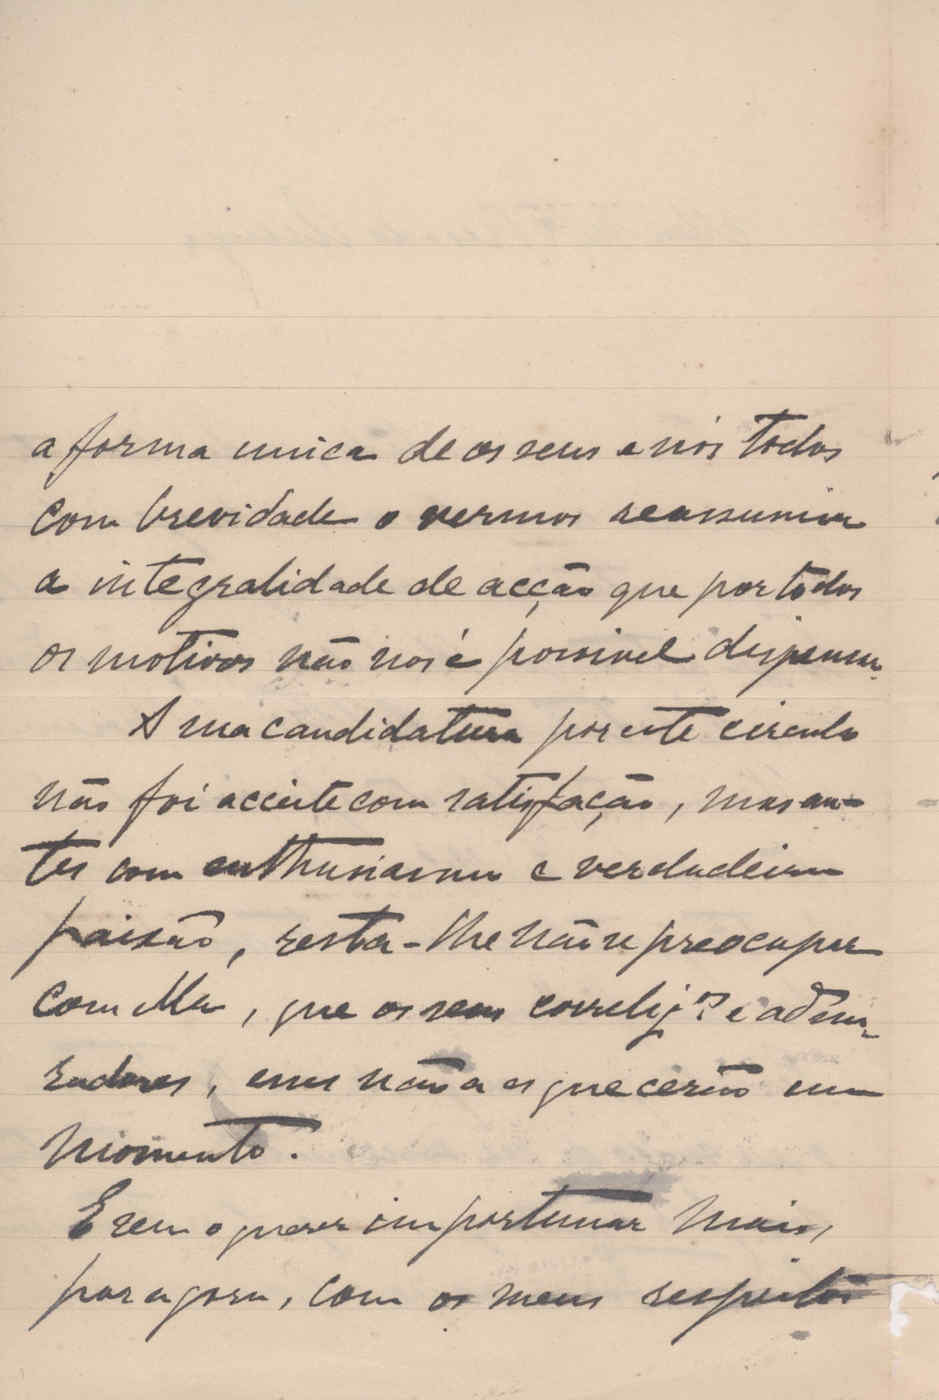 a forma unica de os seus e nós todos
com brevidade o vermos reassumir
a integralidade de acção que por todos
os motivos não nos é possivel dispensar.
A sua candidatura por este circulo
não foi acceite com satisfação, mas an-
tes com enthusiasmo e verdadeira
paixão, resta-lhe não se preocupar
com ella, que os seus correlig.os e admi-
radores, esses não a esquecerão um
momento.
E sem o querer importunar mais,
por agora, com os meus respeitos